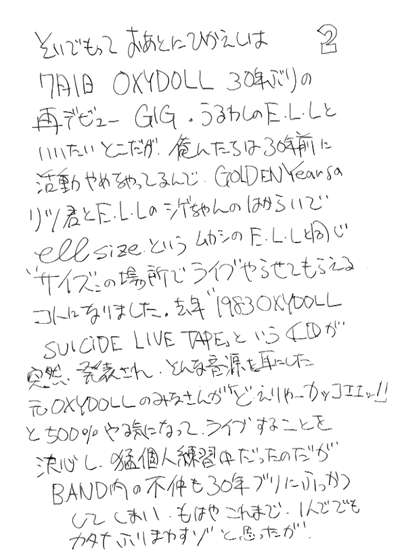 そいでもって おあとにひかえしは 2
7月1日 OXYDOLL 30年ぶりの
再デビュー GIG・うるわしのE.L.Lと
いいたいとこだが、俺んたちは30年前に
活動やめちゃってるんで、GOLDEN Yearsa
リツ君とE.L.Lのシゲちゃんのはからいで
ell sizeという ムカシのE.L.Lと同じ
サイズの場所でライブやらせてもらえる
コトになりました。去年『1983 OXYDOLL
SUICIDE LIVE TAPE』というCDが
突然、発表され、そんな音源を耳にした
元OXYDOLLのみなさんが『どえりゃーカッコエエッ!!』
と500%やる気になって、ライブすることを
決心し、猛個人練習中だったのだが
BAND内の不仲も30年ブリにふっかつ
してしまい、もはやこれまで、1人ででも
カタナふりまわすゾと思ったが、